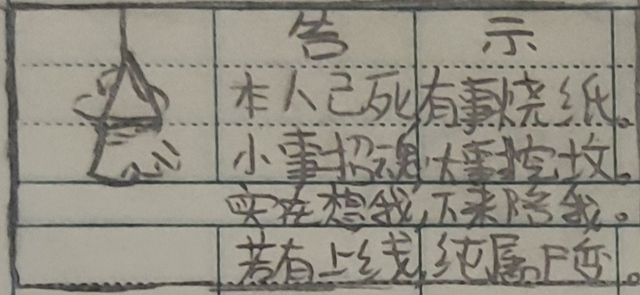 告示
本人已死,有事烧纸。
小事招魂,大事挖坟。
实在想我,下来陪我。
若有上线,纯属尸变。